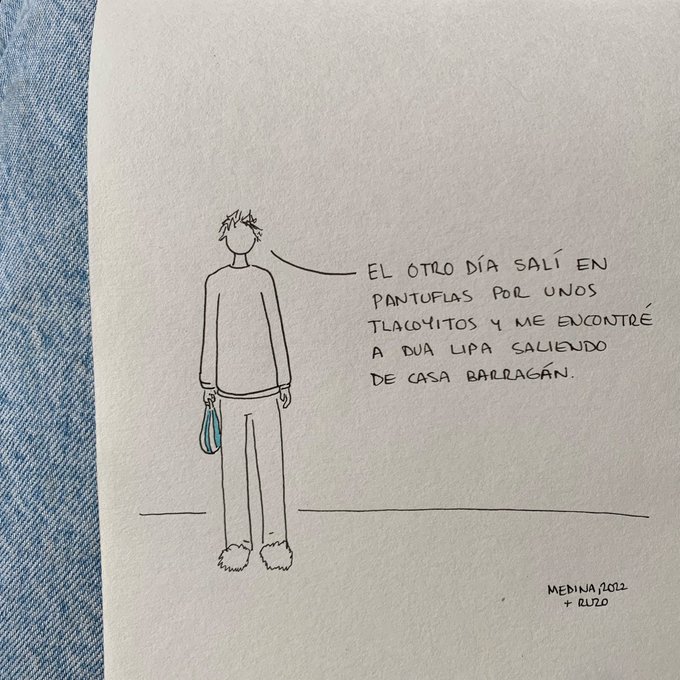 EL OTRO DÍA SALÍ EN
PANTUFLAS POR UNOS
TLACOYITOS Y ME ENCONTRÉ
A DUA LIPA SALIENDO
DE CASA BARRAGÁN.
MEDINA, 2022
+ RUZO